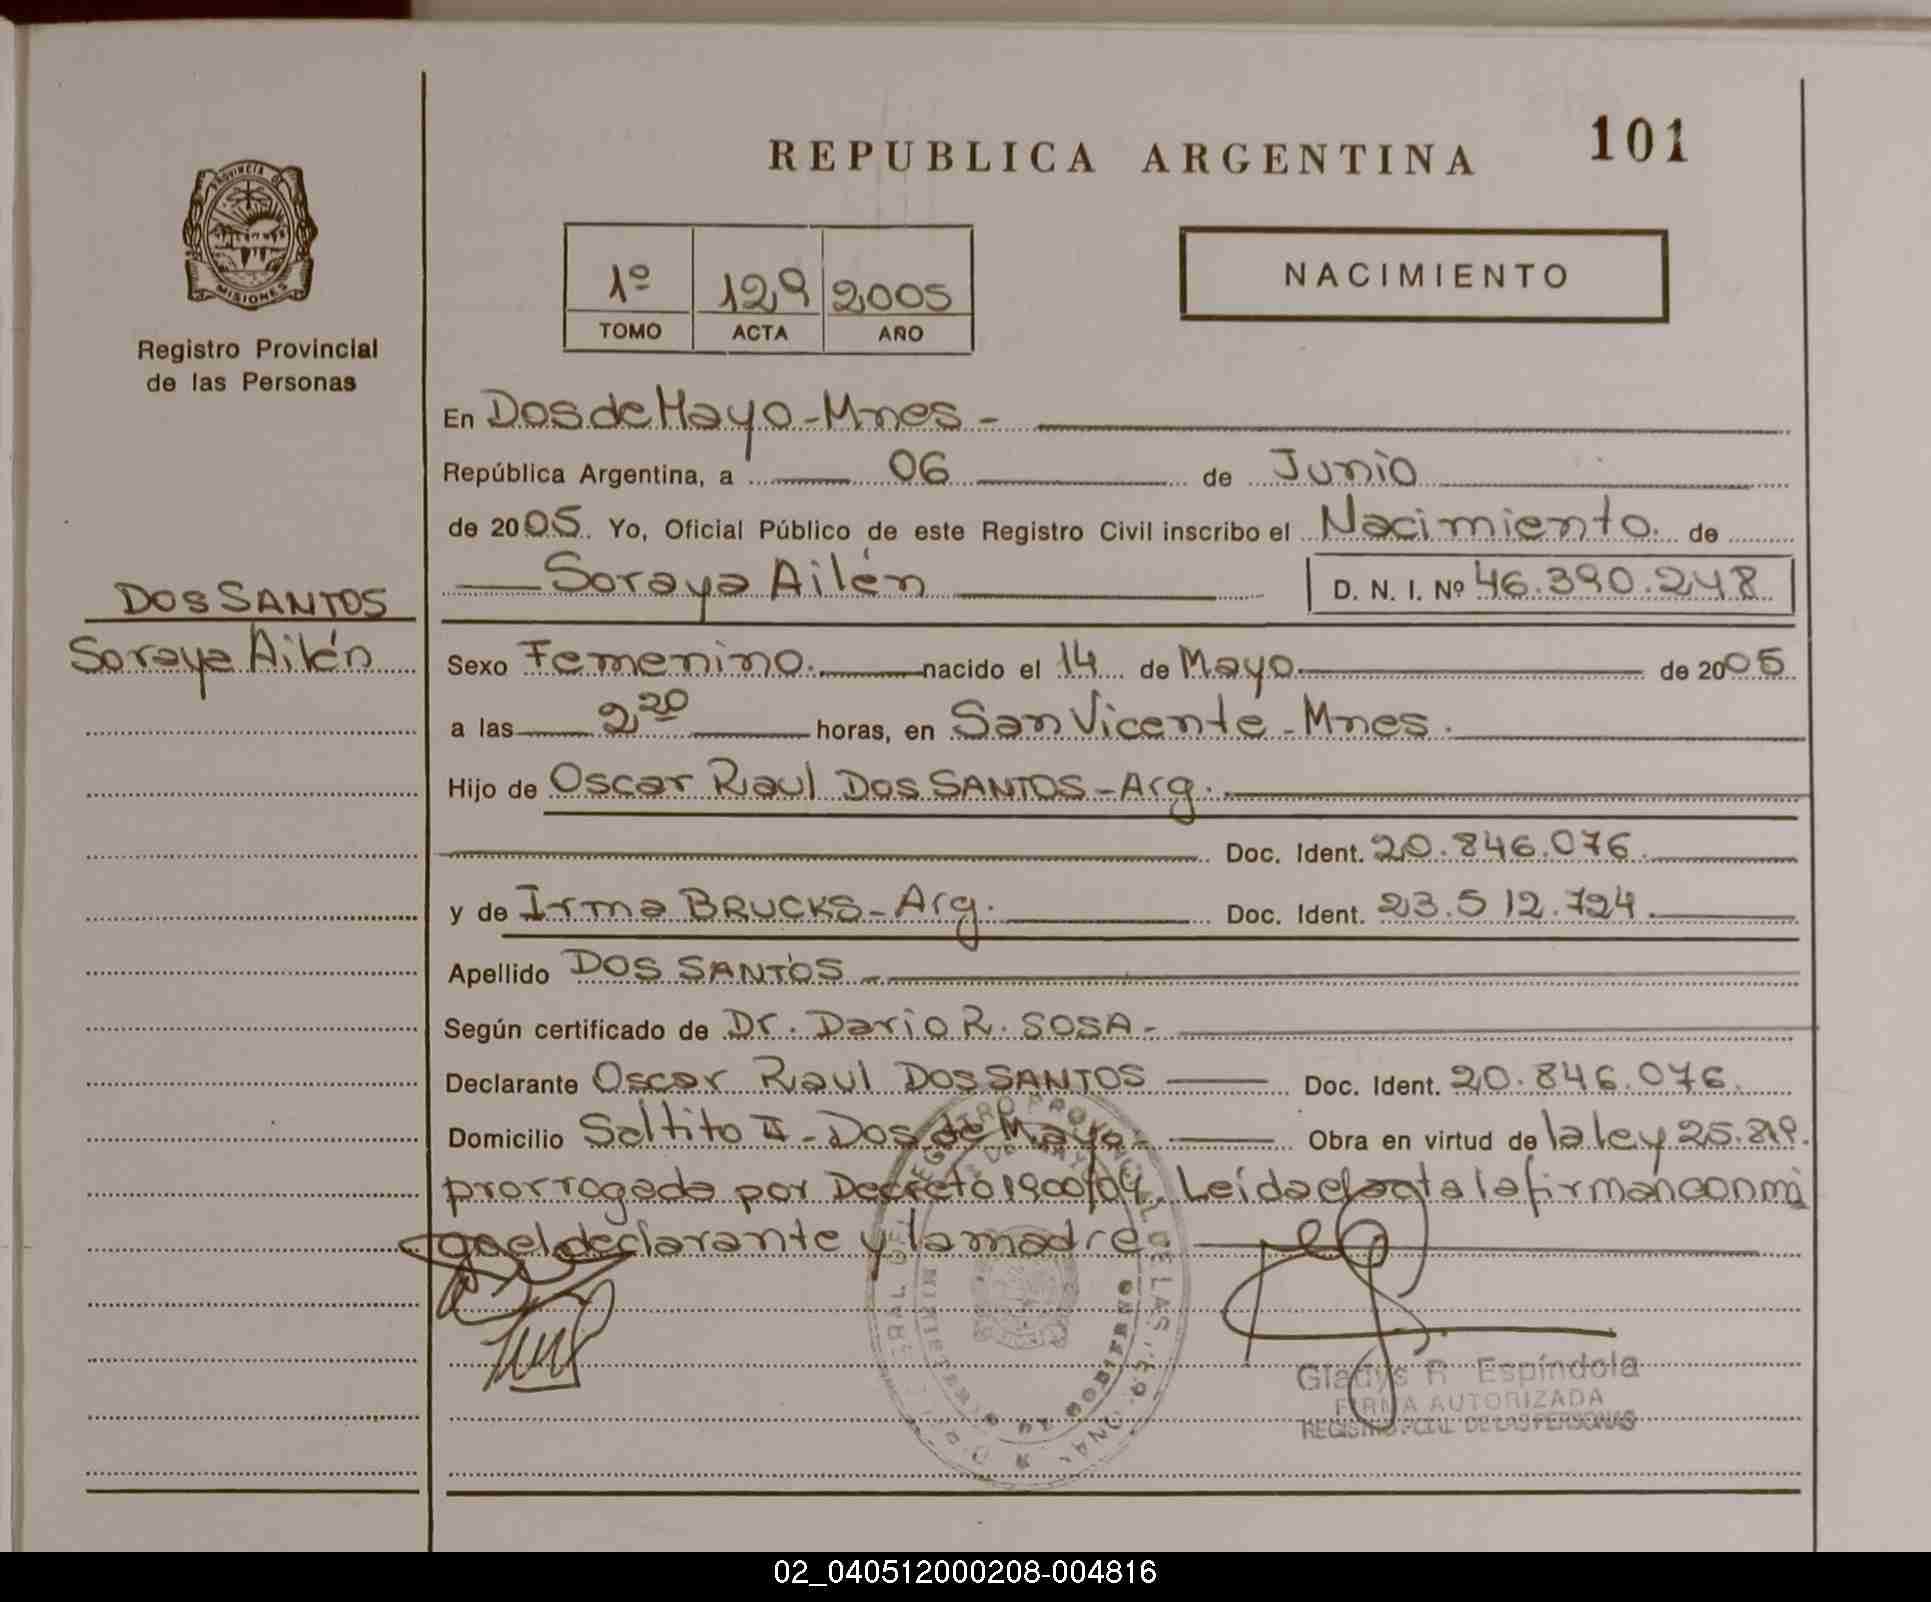 REPUBLICA ARGENTINA
101
PROVINCIA DE
MISIONES
Registro Provincial
de las Personas
1º 129 2005
TOMO ACTA AÑO
NACIMIENTO
En Dos de Mayo - Mnes -
República Argentina, a 06 de Junio
de 2005. Yo, Oficial Público de este Registro Civil inscribo el Nacimiento. de
Soraya Ailén D. N. I. Nº 46.390.248
DOS SANTOS
Soraya Ailén
Sexo Femenino. nacido el 14 de Mayo. de 2005
a las 2,20 horas, en San Vicente - Mnes.
Hijo de Oscar Raul DOS SANTOS - Arg.
Doc. Ident. 20.846.076
y de Irma BRUCKS - Arg. Doc. Ident. 23.512.724
Apellido DOS SANTOS -
Según certificado de Dr. Dario R. SOSA -
Declarante Oscar Raul DOS SANTOS Doc. Ident. 20.846.076.
Domicilio Saltito II - Dos de Mayo - Obra en virtud de la ley 25.819.
prorrogada por Decreto 1900/04. Leída el acta la firman conmi
go el declarante y la madre
Gladys R. Espíndola
FIRMA AUTORIZADA
REGISTRO PCIAL. DE LAS PERSONAS
02_040512000208-004816